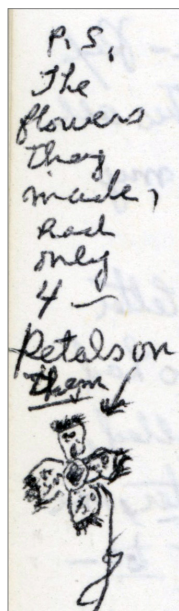 P.S.
The
flowers
they
made,
had
only
4 —
Petals on
them